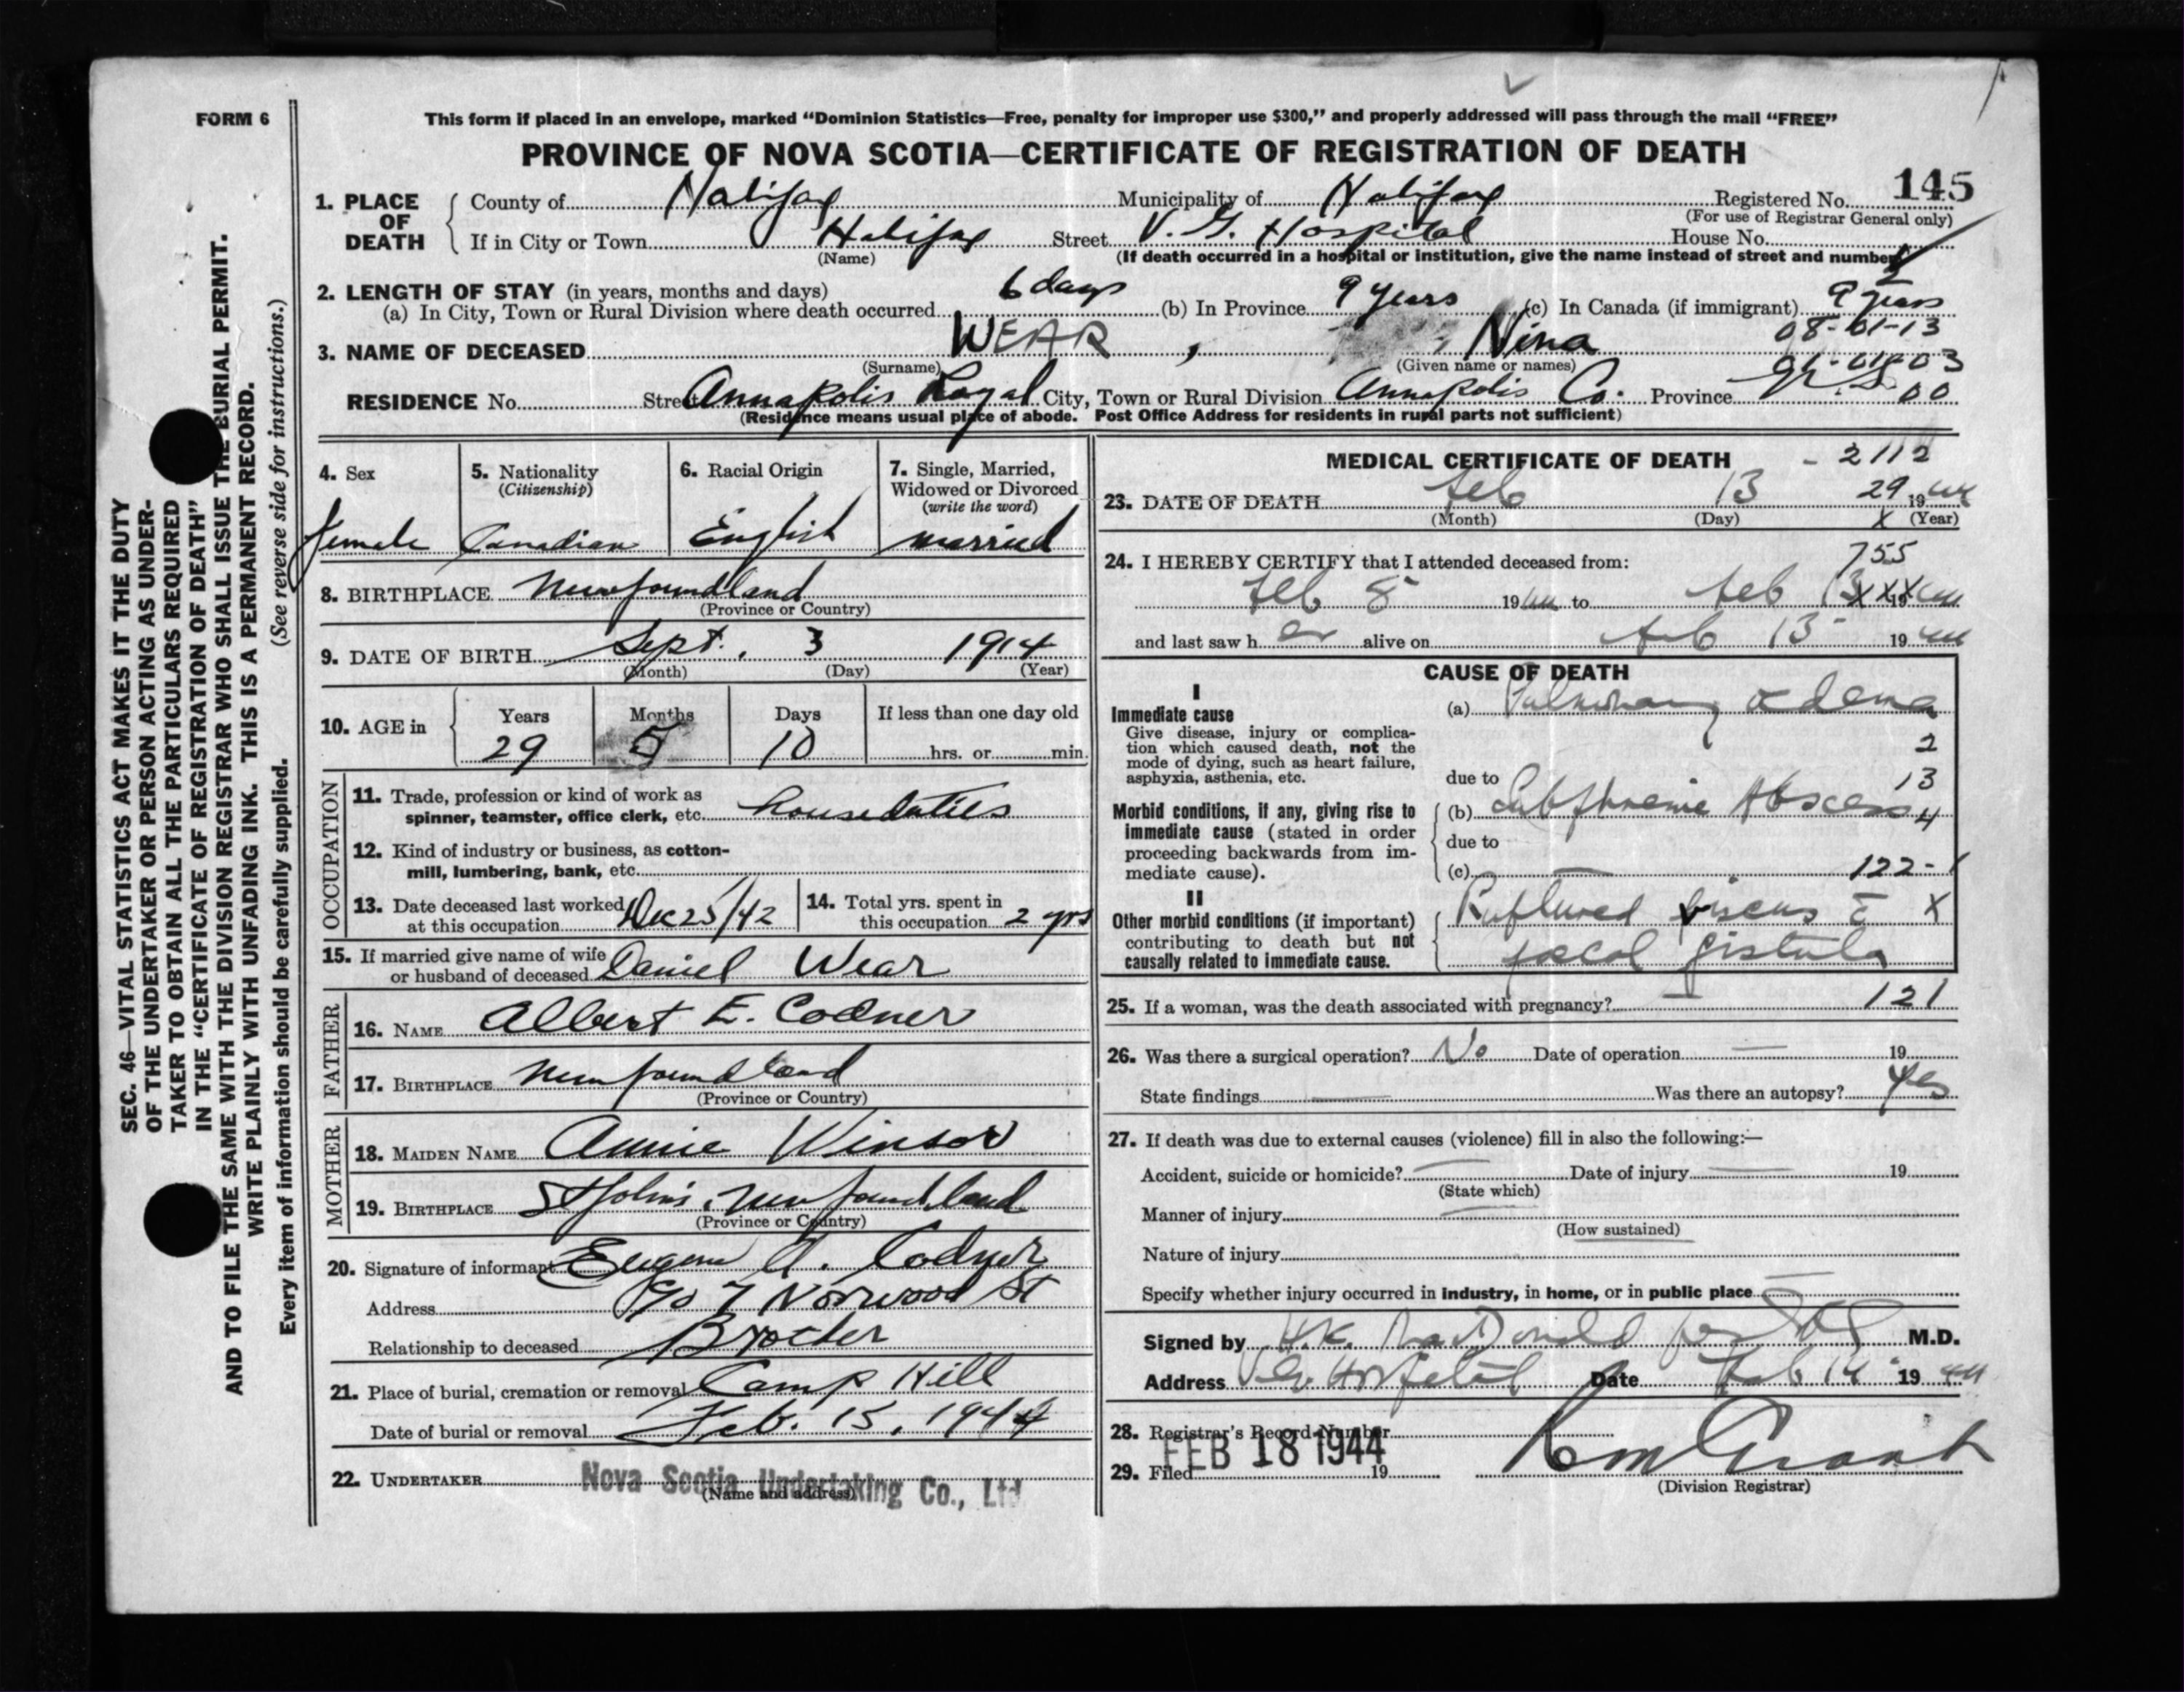 FORM 6
This form if placed in an envelope, marked “Dominion Statistics—Free, penalty for improper use $300,” and properly addressed will pass through the mail “FREE”
PROVINCE OF NOVA SCOTIA—CERTIFICATE OF REGISTRATION OF DEATH
145
1. PLACE OF DEATH County of Halifax Municipality of Halifax Registered No.
(For use of Registrar General only)
If in City or Town Halifax Street V. G. Hospital House No.
(Name) (If death occurred in a hospital or institution, give the name instead of street and number)
2. LENGTH OF STAY (in years, months and days)
(a) In City, Town or Rural Division where death occurred 6 days (b) In Province 9 years (c) In Canada (if immigrant) 9 years
08-01-13
3. NAME OF DECEASED WEAR , Nina
(Surname) (Given name or names)
RESIDENCE No. Street Annapolis Royal City, Town or Rural Division Annapolis Co. Province N.S. 00
(Residence means usual place of abode. Post Office Address for residents in rural parts not sufficient)
4. Sex
female
5. Nationality
(Citizenship)
Canadian
6. Racial Origin
English
7. Single, Married,
Widowed or Divorced
(write the word)
married
8. BIRTHPLACE Newfoundland
(Province or Country)
9. DATE OF BIRTH Sept. 3 1914
(Month) (Day) (Year)
10. AGE in Years Months Days If less than one day old
29 5 10 hrs. or min.
OCCUPATION
11. Trade, profession or kind of work as
spinner, teamster, office clerk, etc. house duties
12. Kind of industry or business, as cotton-
mill, lumbering, bank, etc.
13. Date deceased last worked
at this occupation Dec 25/42
14. Total yrs. spent in
this occupation 2 yrs
15. If married give name of wife
or husband of deceased Daniel Wear
FATHER
16. NAME Albert E. Codner
17. BIRTHPLACE Newfoundland
(Province or Country)
MOTHER
18. MAIDEN NAME Annie Winsor
19. BIRTHPLACE St John's, Newfoundland
(Province or Country)
20. Signature of informant Eugene A. Codner
Address 90 7 Norwood St
Relationship to deceased Brother
21. Place of burial, cremation or removal Camp Hill
Date of burial or removal Feb. 15, 1944
22. UNDERTAKER Nova Scotia Undertaking Co., Ltd
(Name and address)
MEDICAL CERTIFICATE OF DEATH - 2112
23. DATE OF DEATH Feb 13 29 19 44
(Month) (Day) X (Year)
24. I HEREBY CERTIFY that I attended deceased from: 755
Feb 8 19 44 to Feb 13 XXX 19 44
and last saw h er alive on Feb 13 19 44
CAUSE OF DEATH
I
Immediate cause
Give disease, injury or complica-
tion which caused death, not the
mode of dying, such as heart failure,
asphyxia, asthenia, etc.
(a) Pulmonary oedema
2
due to 13
Morbid conditions, if any, giving rise to
immediate cause (stated in order
proceeding backwards from im-
mediate cause).
(b) Subphrenic Abscess 4
due to
(c) 122-1
II
Other morbid conditions (if important)
contributing to death but not
causally related to immediate cause.
Ruptured viscus c̄ X
faecal fistula
25. If a woman, was the death associated with pregnancy? — 121
26. Was there a surgical operation? No Date of operation — 19
State findings — Was there an autopsy? Yes
27. If death was due to external causes (violence) fill in also the following:—
Accident, suicide or homicide? — Date of injury — 19
(State which)
Manner of injury —
(How sustained)
Nature of injury
Specify whether injury occurred in industry, in home, or in public place —
Signed by H.K. MacDonald M.D.
Address V.G. Hospital Date Feb 14 19 44
28. Registrar's Record Number
29. Filed FEB 18 1944 19
(Division Registrar)
SEC. 46—VITAL STATISTICS ACT MAKES IT THE DUTY
OF THE UNDERTAKER OR PERSON ACTING AS UNDER-
TAKER TO OBTAIN ALL THE PARTICULARS REQUIRED
IN THE “CERTIFICATE OF REGISTRATION OF DEATH”
AND TO FILE THE SAME WITH THE DIVISION REGISTRAR WHO SHALL ISSUE THE BURIAL PERMIT.
WRITE PLAINLY WITH UNFADING INK. THIS IS A PERMANENT RECORD.
Every item of information should be carefully supplied. (See reverse side for instructions.)